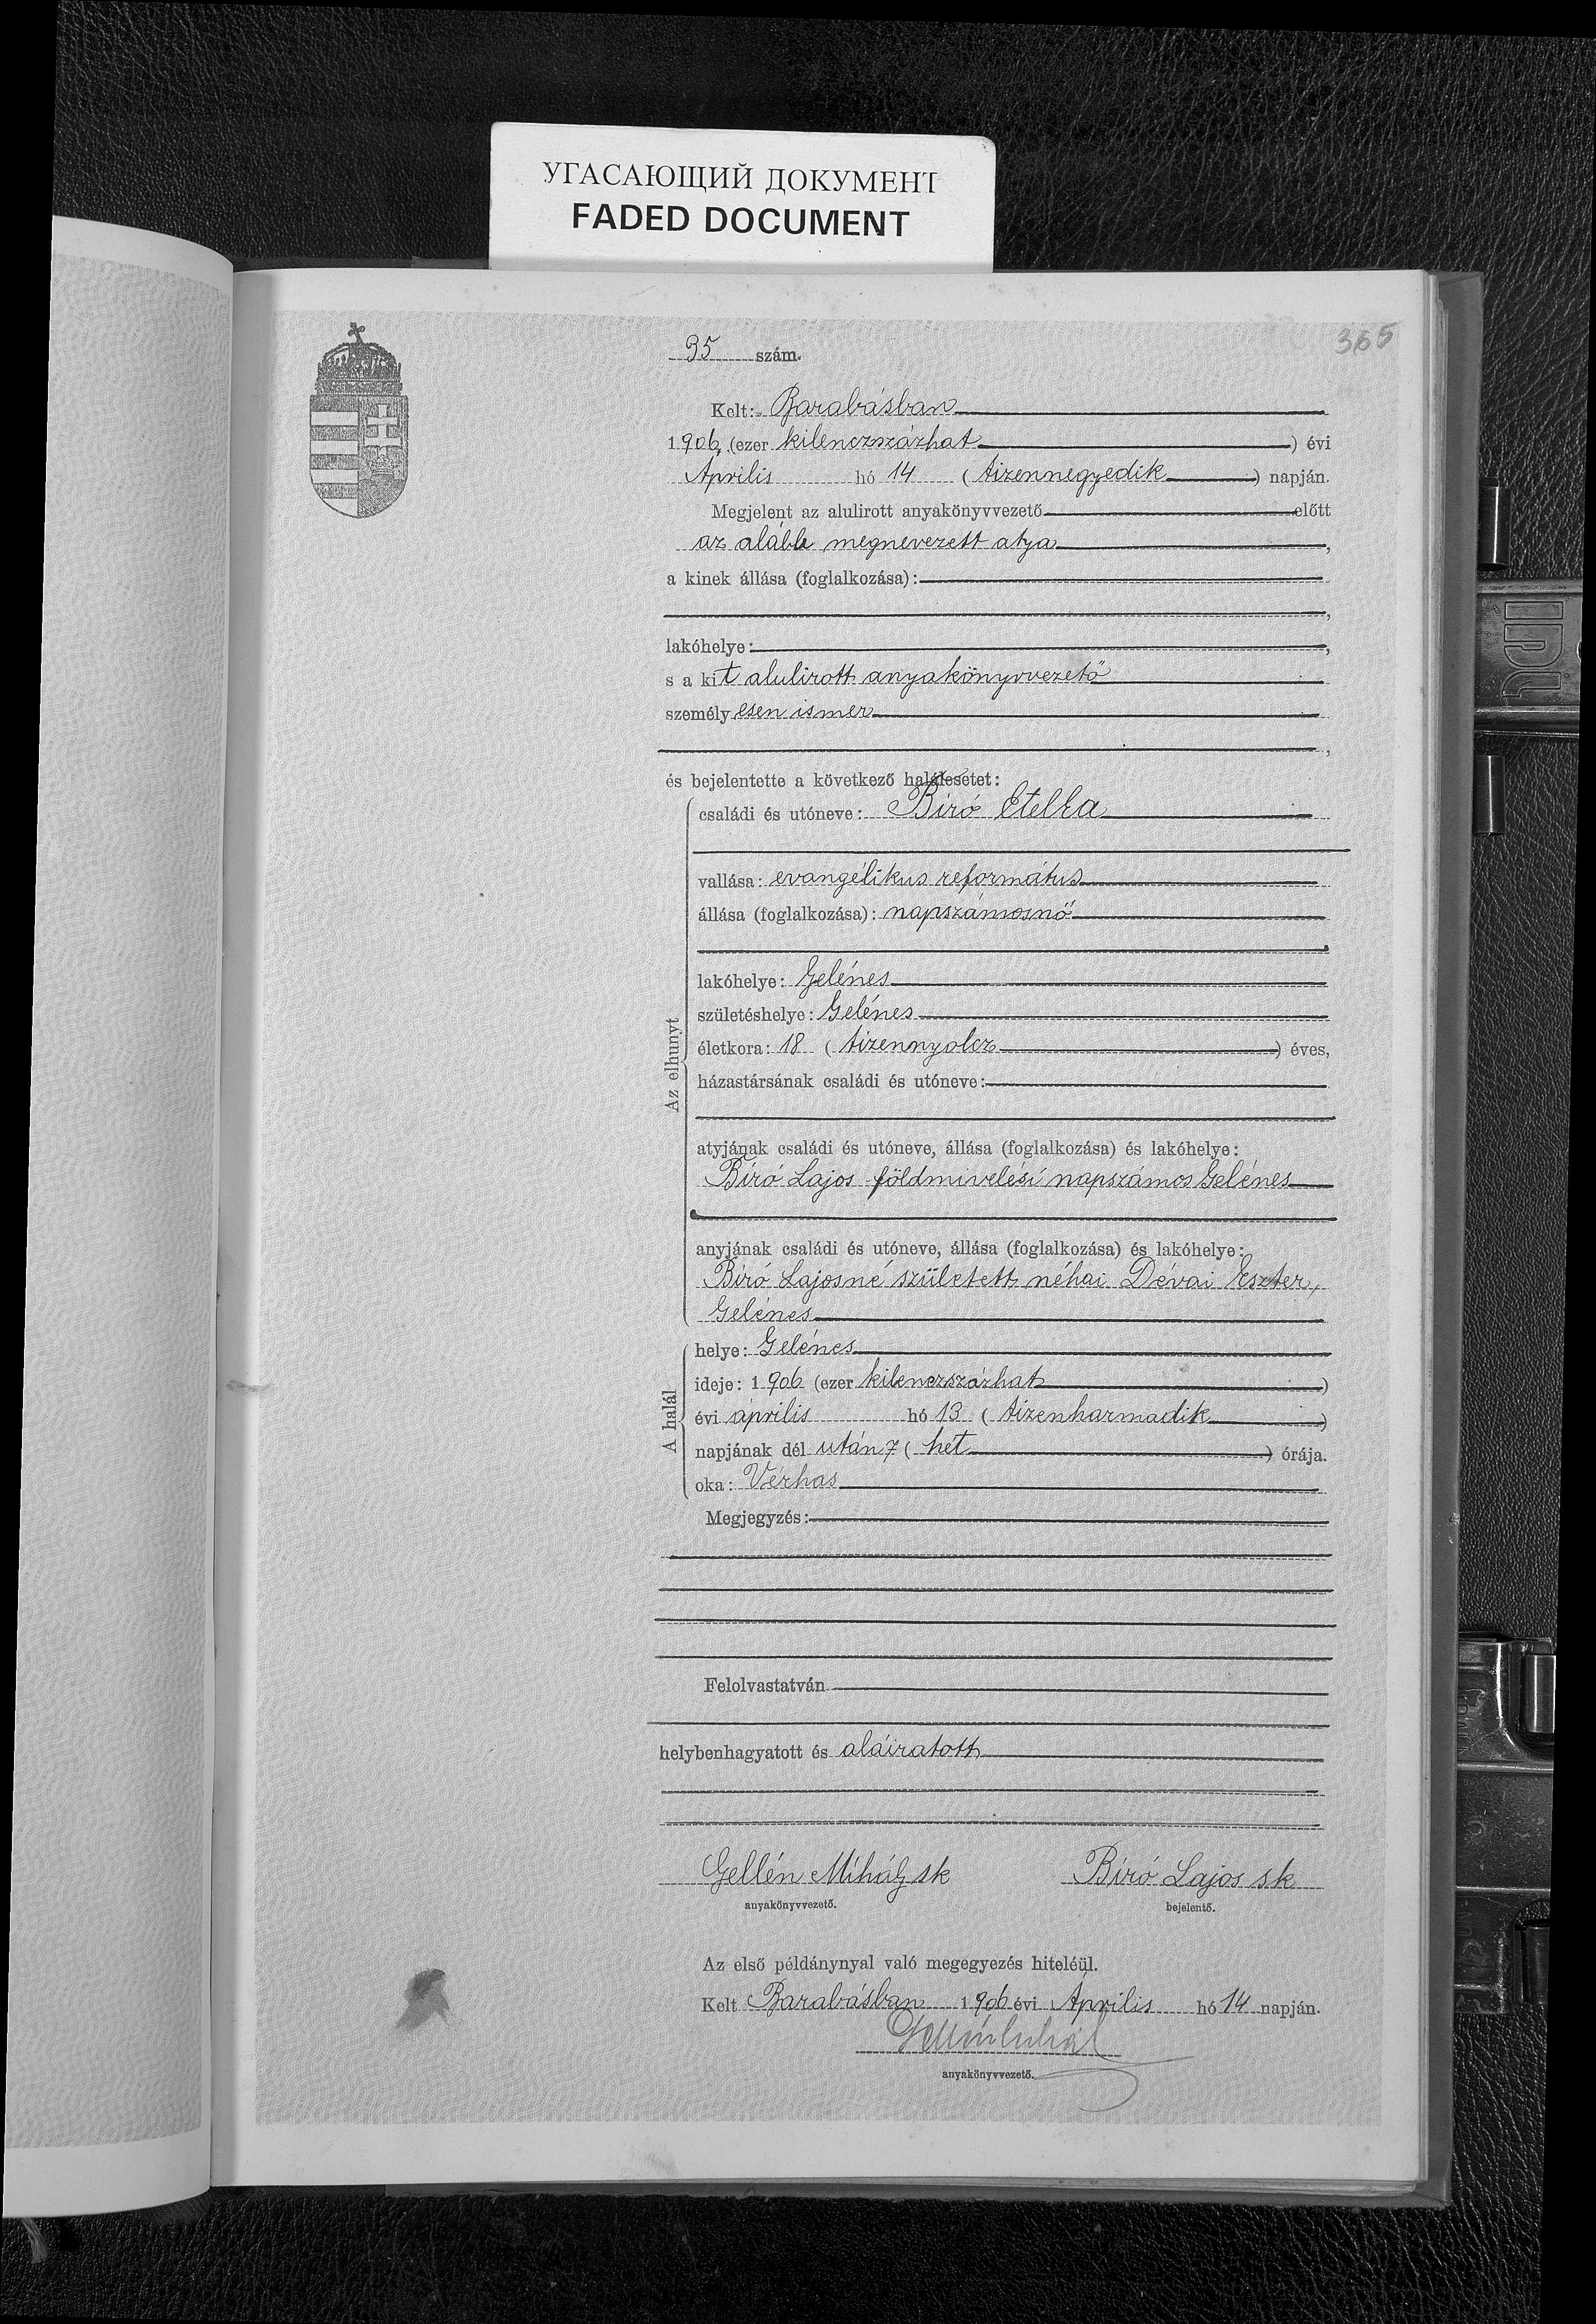 УГАСАЮЩИЙ ДОКУМЕНТ
FADED DOCUMENT
365
35 szám.
Kelt: Barabásban
1906, (ezer kilenczszázhat) évi
Április hó 14 (tizennegyedik) napján.
Megjelent az alulirott anyakönyvvezető előtt
az alább megnevezett atya,
a kinek állása (foglalkozása):
,
lakóhelye: ,
s a kit alulirott anyakönyvvezető
személyesen ismer
,
és bejelentette a következő halálesetet:
Az elhunyt
családi és utóneve: Biró Etelka
vallása: evangélikus református
állása (foglalkozása): napszámosnő
lakóhelye: Gelénes
születéshelye: Gelénes
életkora: 18 (tizennyolcz) éves,
házastársának családi és utóneve:
atyjának családi és utóneve, állása (foglalkozása) és lakóhelye:
Biró Lajos földmivelési napszámos Gelénes
anyjának családi és utóneve, állása (foglalkozása) és lakóhelye:
Biró Lajosné született néhai Dévai Eszter,
Gelénes
A halál
helye: Gelénes
ideje: 1906 (ezer kilenczszázhat)
évi április hó 13 (tizenharmadik)
napjának dél után 7 (hét) órája.
oka: Vérhas
Megjegyzés:
Felolvastatván
helybenhagyatott és aláiratott
Gellén Mihály sk Biró Lajos sk
anyakönyvvezető. bejelentő.
Az első példánynyal való megegyezés hiteléül.
Kelt Barabásban 1906 évi Április hó 14 napján.
anyakönyvvezető.